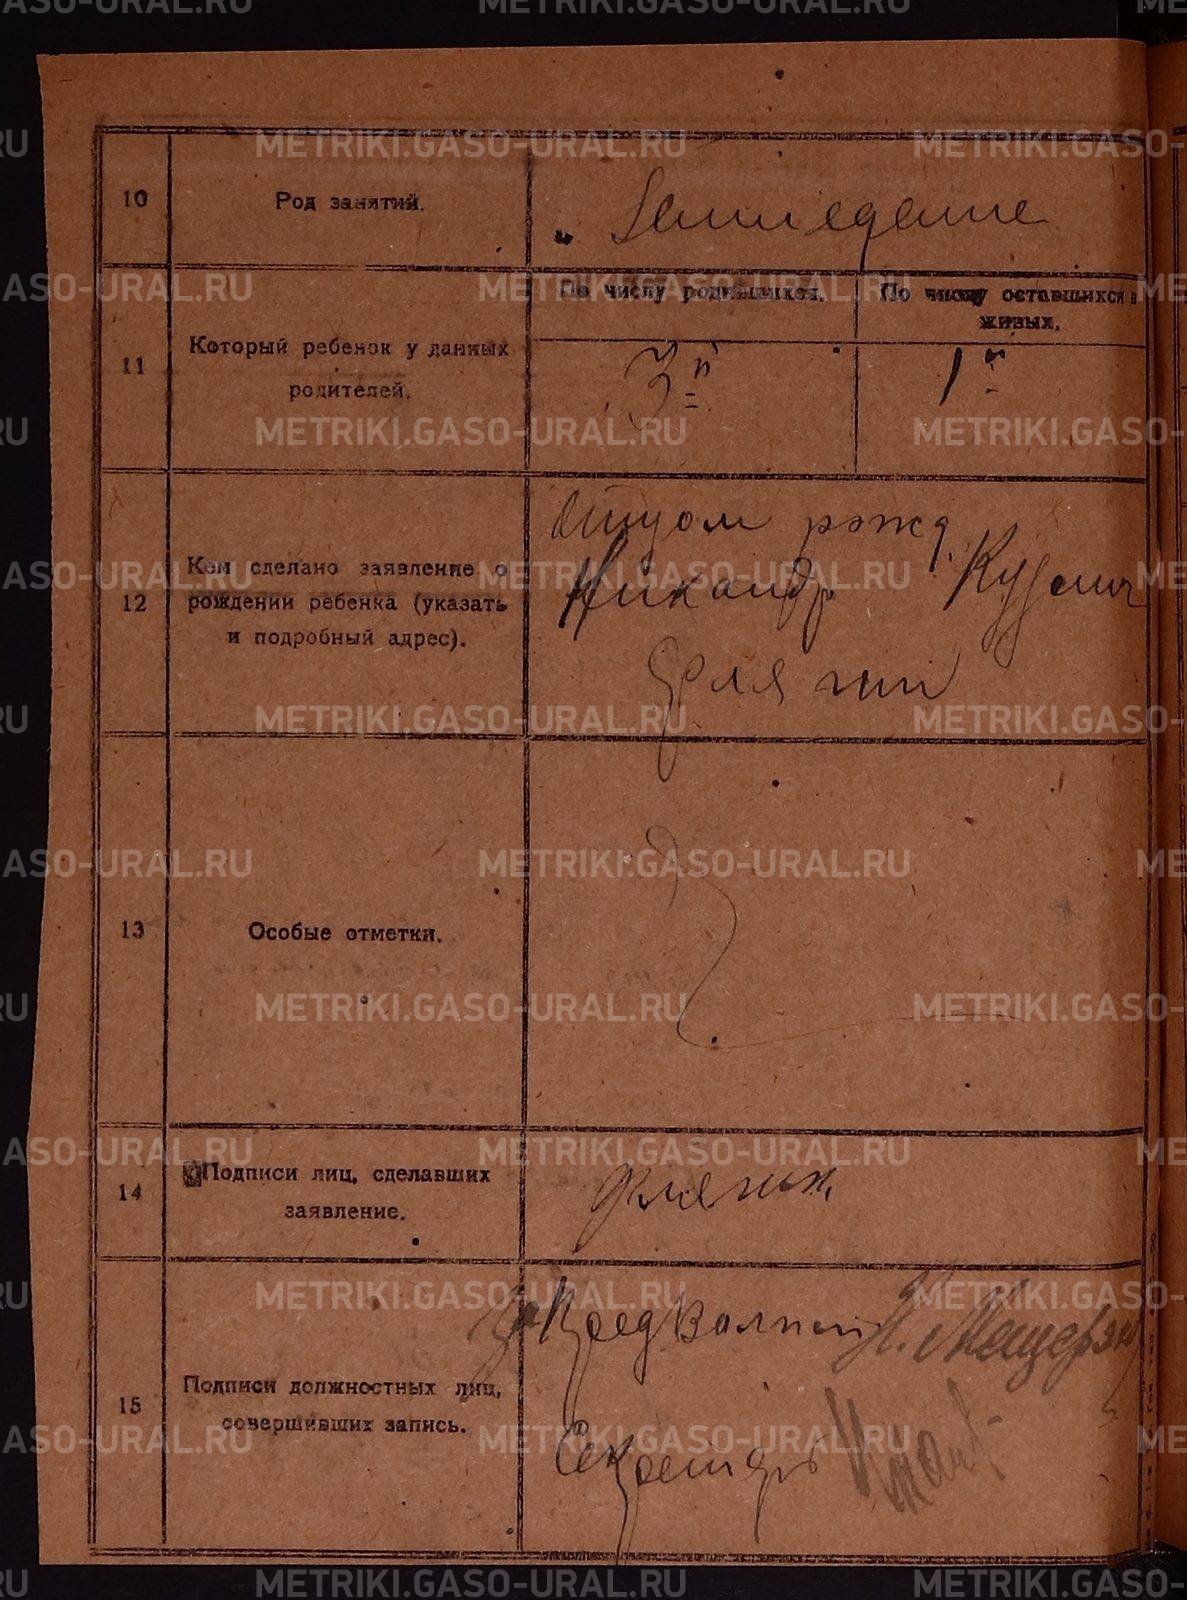 10
Род занятий.
„ Земледелие
11
Который ребенок у данных
родителей.
По числу родившихся.
По числу оставшихся в
живых.
3й
1й
12
Кем сделано заявление о
рождении ребенка (указать
и подробный адрес).
Отцом рожд.
Никандр Кузмич
13
Особые отметки.
14
Подписи лиц, сделавших
заявление.
15
Подписи должностных лиц,
совершивших запись.
За Пред
Секретарь
METRIKI.GASO-URAL.RU